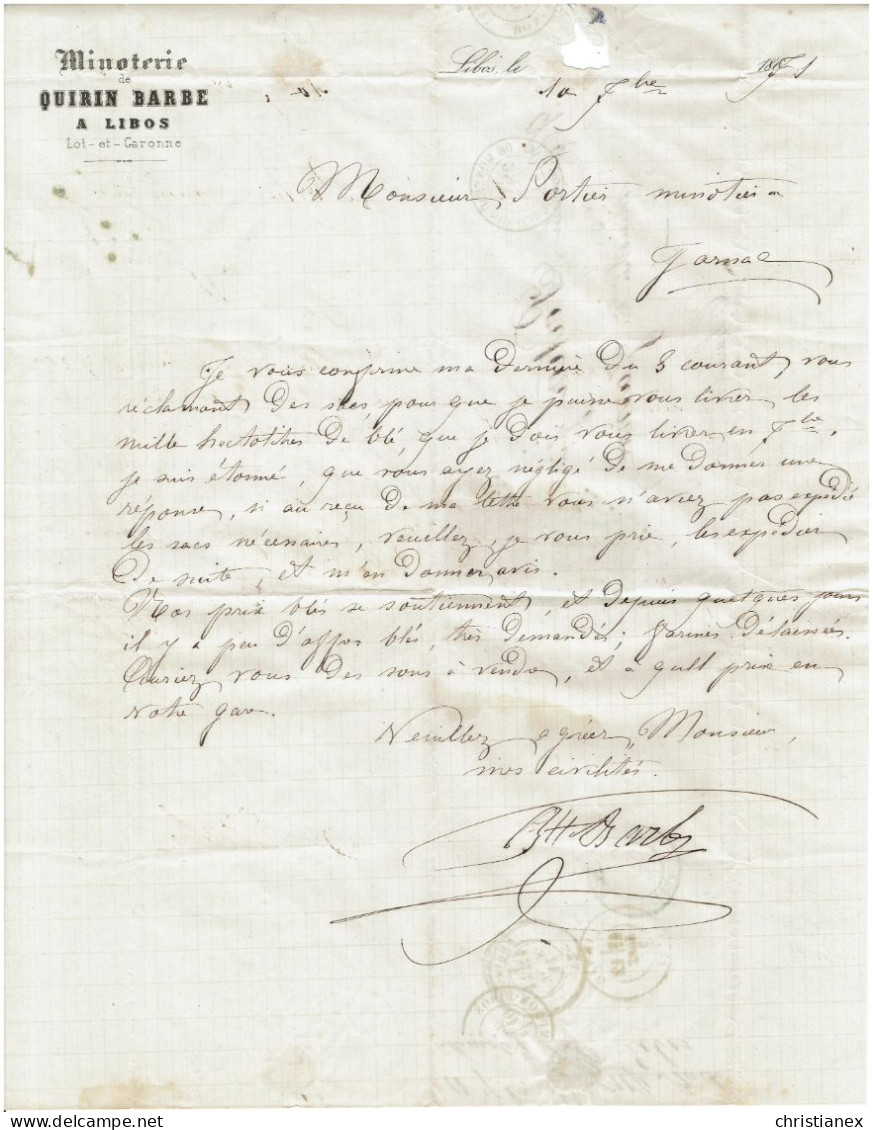 Minoterie
de
QUIRIN BARBE
A LIBOS
Lot-et-Garonne
Libos, le 10 7bre 1871
Monsieur Portier minotier
Jarnac
Je vous confirme ma dernière du 3 courant, vous
réclamant des sacs, pour que je puisse vous livrer les
mille hectolitres de blé que je dois vous livrer en 7bre.
je suis étonné, que vous ayez négligé de me donner une
réponse, si au reçu de ma lettre vous n'aviez pas expédié
les sacs nécessaires, veuillez, je vous prie, les expédier
de suite, et m'en donner avis.
Nos prix blés se soutiennent, et depuis quelques jours
il y a peu d'affres blés, très demandés; farines délaissées.
Auriez vous des sons à vendre, et à quel prix en
votre gare.
Veuillez agréer, Monsieur,
mes civilités.
Barbe
christianex